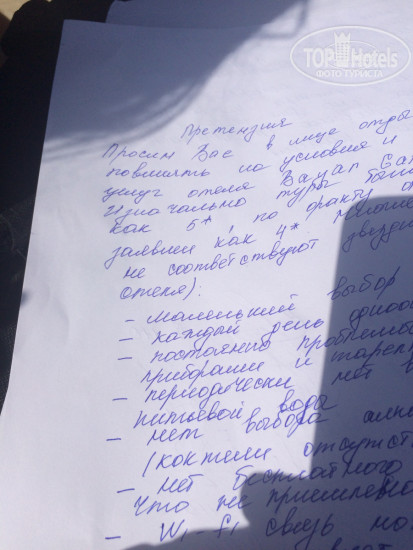 TOPHotels
ФОТО ТУРИСТА
Претензия
Просим Вас в лице отды
повлиять на условия и
услуг отеля
Изначально туры были
как 5* по факту
заявлен как 4*
не соответствуют
отеля):
- маленький выбор
- каждый день одноо
- постоянно проблемы
приборами и тарел
- периодически нет в
питьевой воды
- нет выбора алко
(коктели отсутст
- нет бесплатного
что не приемлемо
- Wi-fi связь